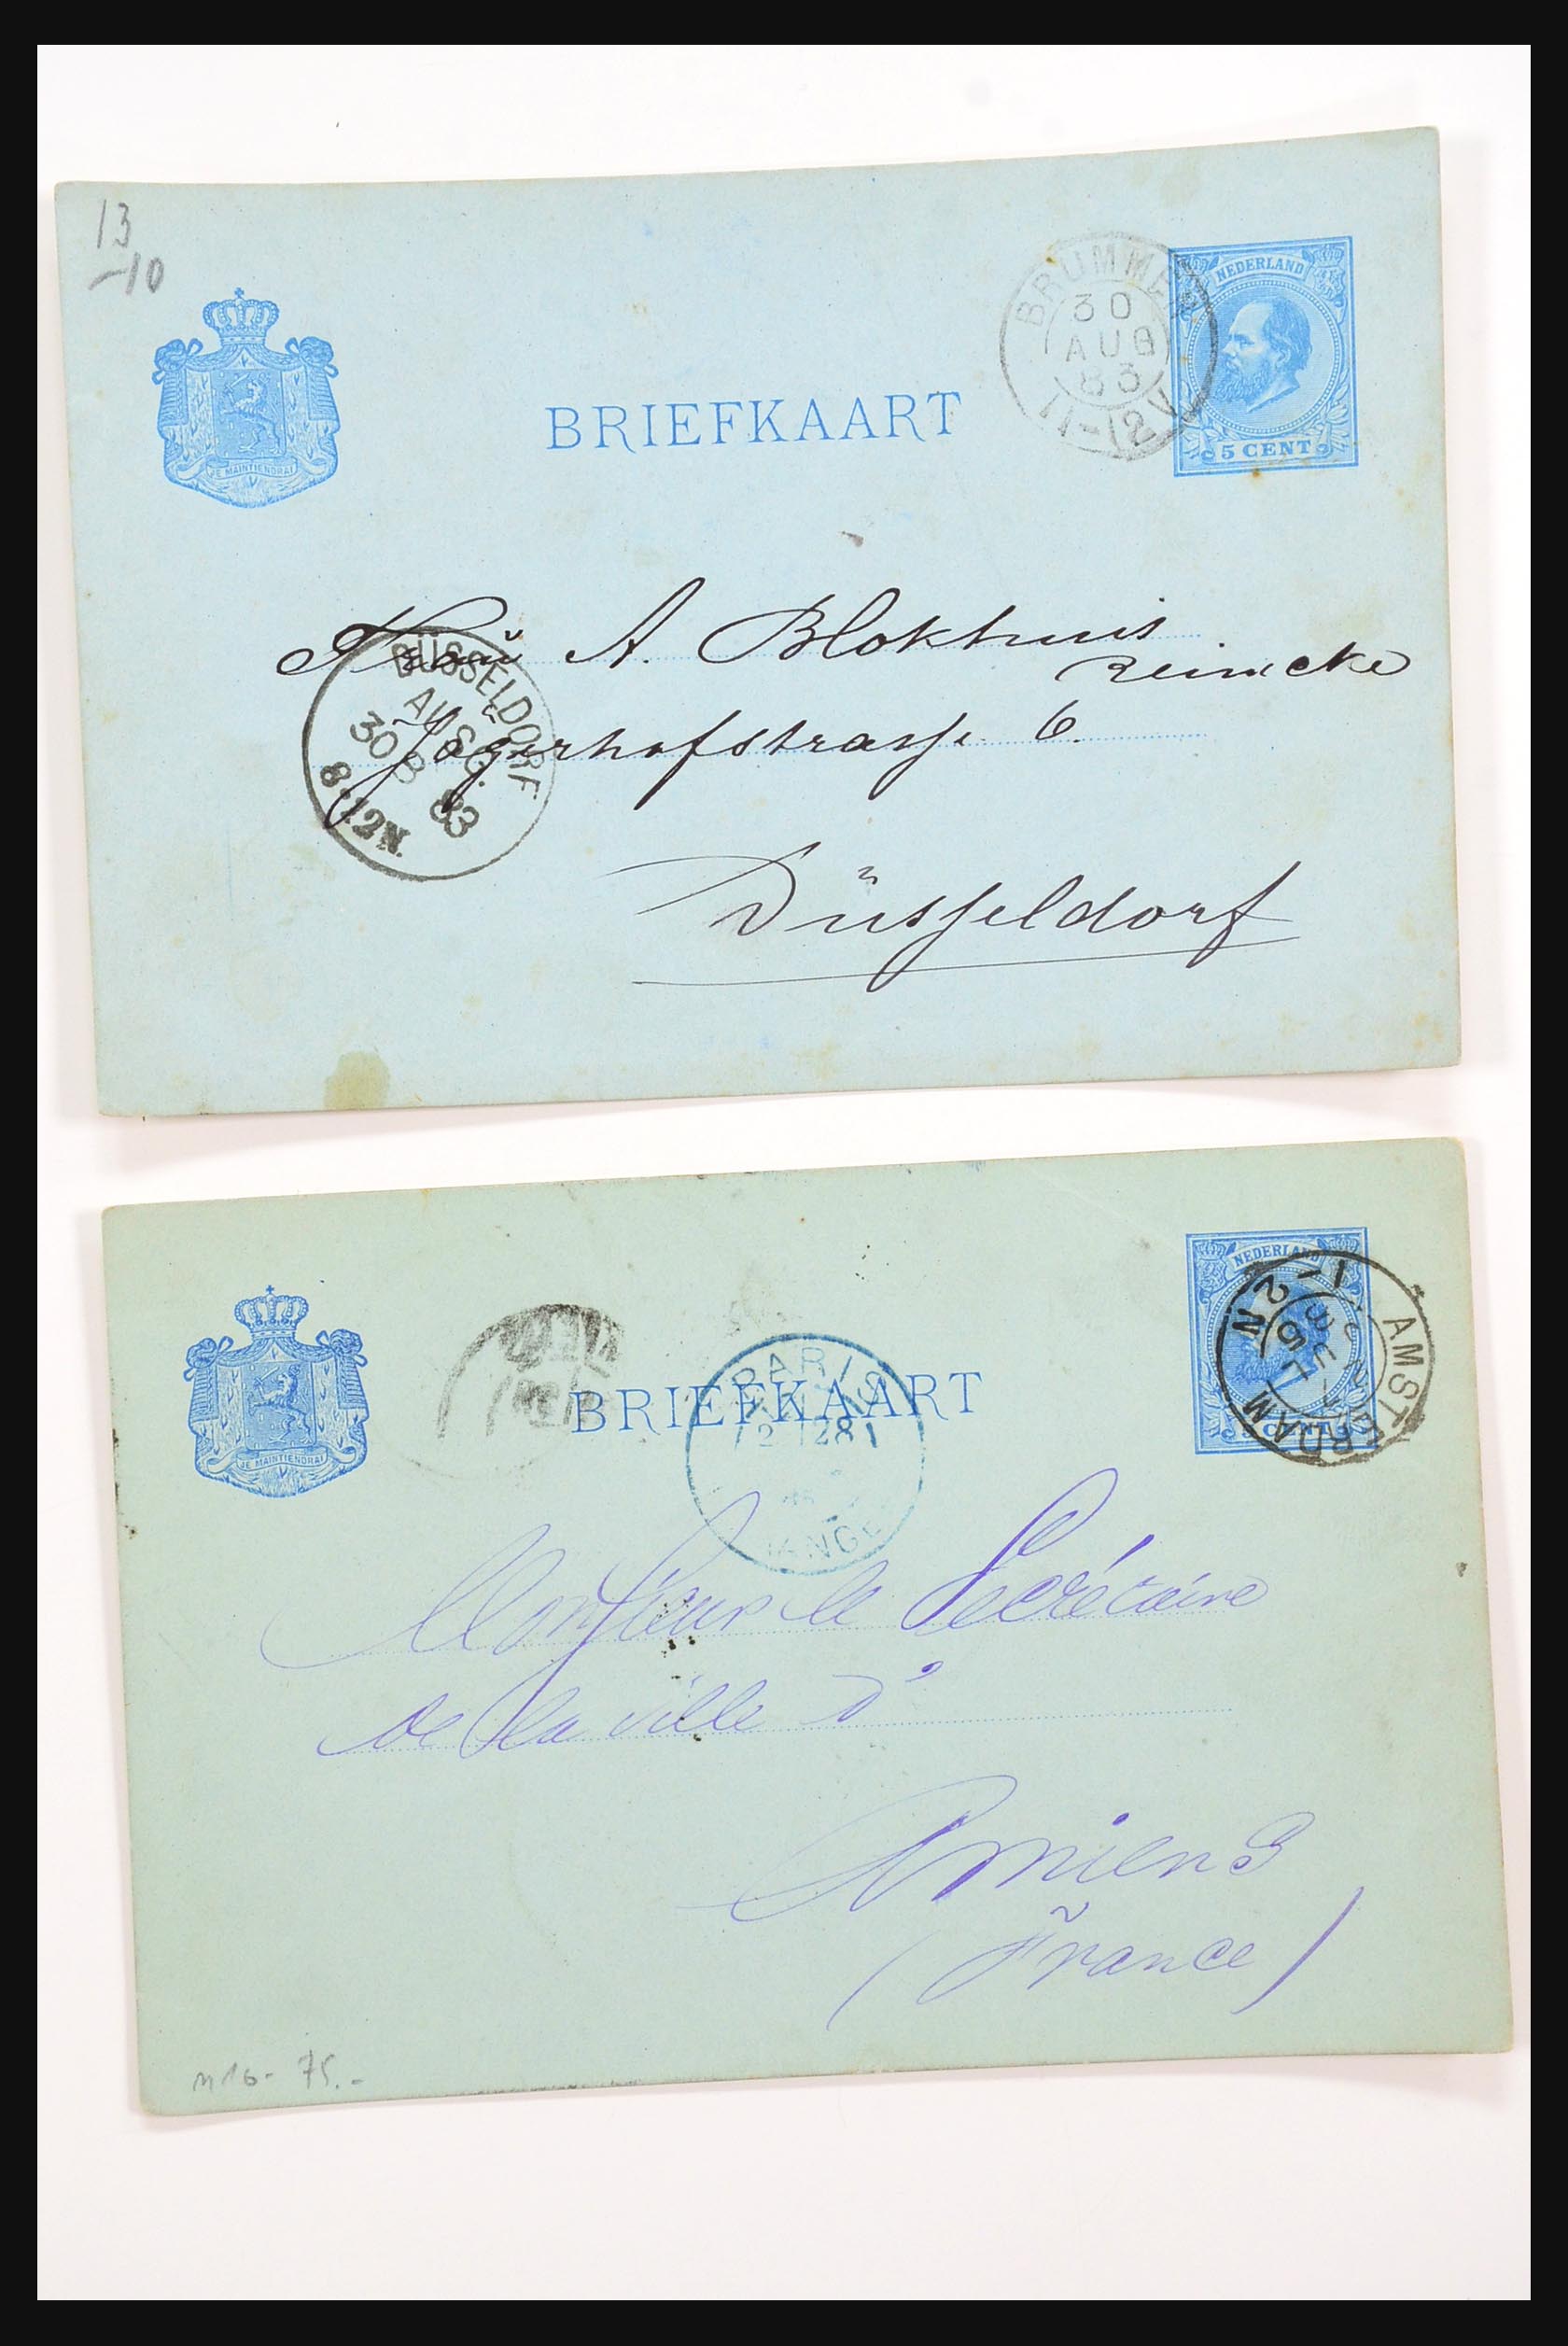 13
-10
NEDERLAND
5 CENT
BRUMMEN
30
AUG
83
11-12V
JE MAINTIENDRAI
BRIEFKAART
Frau A. Blokhuis
Reinecke
Jägerhofstrasse 6.
Düsseldorf
DÜSSELDORF
AUSG.
30 8 83
8-12N.
NEDERLAND
5 CENT
AMSTERDAM
1-2N
JE MAINTIENDRAI
BRIEFKAART
PARIS
Monsieur le Secrétaire
de la ville d'
Amiens
(France)
M16- 75.-